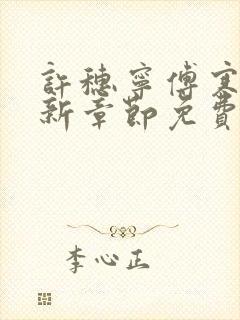 許穗寧傅寒
新章節免費
李心正